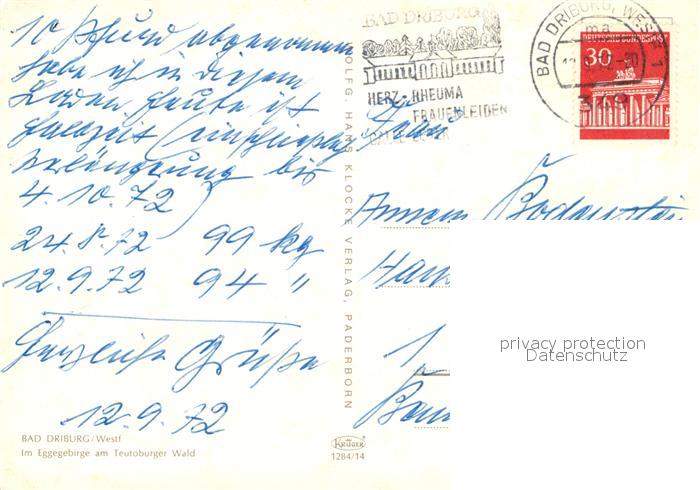 10 Pfund abgenommen
habe ich in diesem
Laden heute ist
Halbzeit (einschließlich
Verlängerung bis
4.10.72)
24.8.72 99 kg
12.9.72 94 "
Herzliche Grüße
12.9.72
BAD DRIBURG/Westf
Im Eggegebirge am Teutoburger Wald
WOLFG. HANS KLOCKE VERLAG, PADERBORN
KRÜGER
1284/14
BAD DRIBURG
HERZ - RHEUMA
FRAUENLEIDEN
BAD DRIBURG, WESTF 1
ma
349
DEUTSCHE BUNDESPOST
30
Frau
Bodenstein
1
privacy protection
Datenschutz